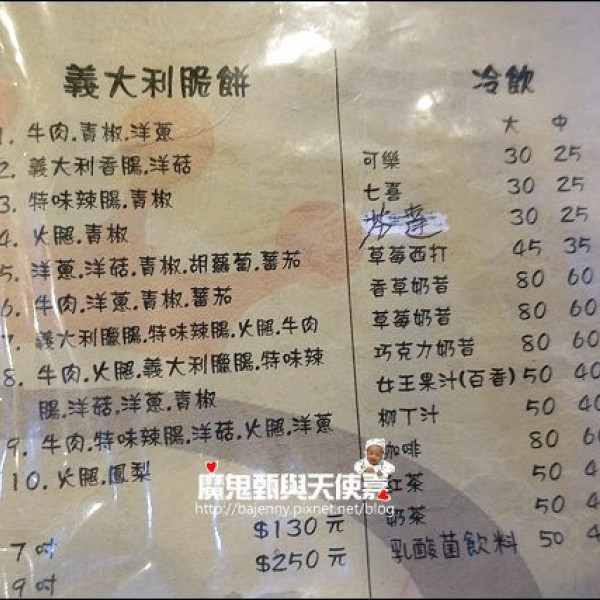 義大利脆餅
1. 牛肉.青椒.洋蔥
2. 義大利香腸.洋菇
3. 特味辣腸.青椒
4. 火腿.青椒
5. 洋蔥.洋菇.青椒.胡蘿蔔.蕃茄
6. 牛肉.洋蔥.青椒.蕃茄
7. 義大利臘腸.特味辣腸.火腿.牛肉
8. 牛肉.火腿.義大利臘腸.特味辣
腸.洋菇.洋蔥.青椒
9. 牛肉.特味辣腸.洋菇.火腿.洋蔥
10. 火腿.鳳梨
7吋 $130元
9吋 $250元
冷飲
大 中
可樂 30 25
七喜 30 25
芬達 30 25
草莓西打 45 35
香草奶昔 80 60
草莓奶昔 80 60
巧克力奶昔 80 60
女王果汁(百香) 50 40
柳丁汁 50 40
咖啡 80 60
紅茶 50 4
奶茶 50 4
乳酸菌飲料 50 4
魔鬼甄與天使嘉
http://bajenny.pixnet.net/blog